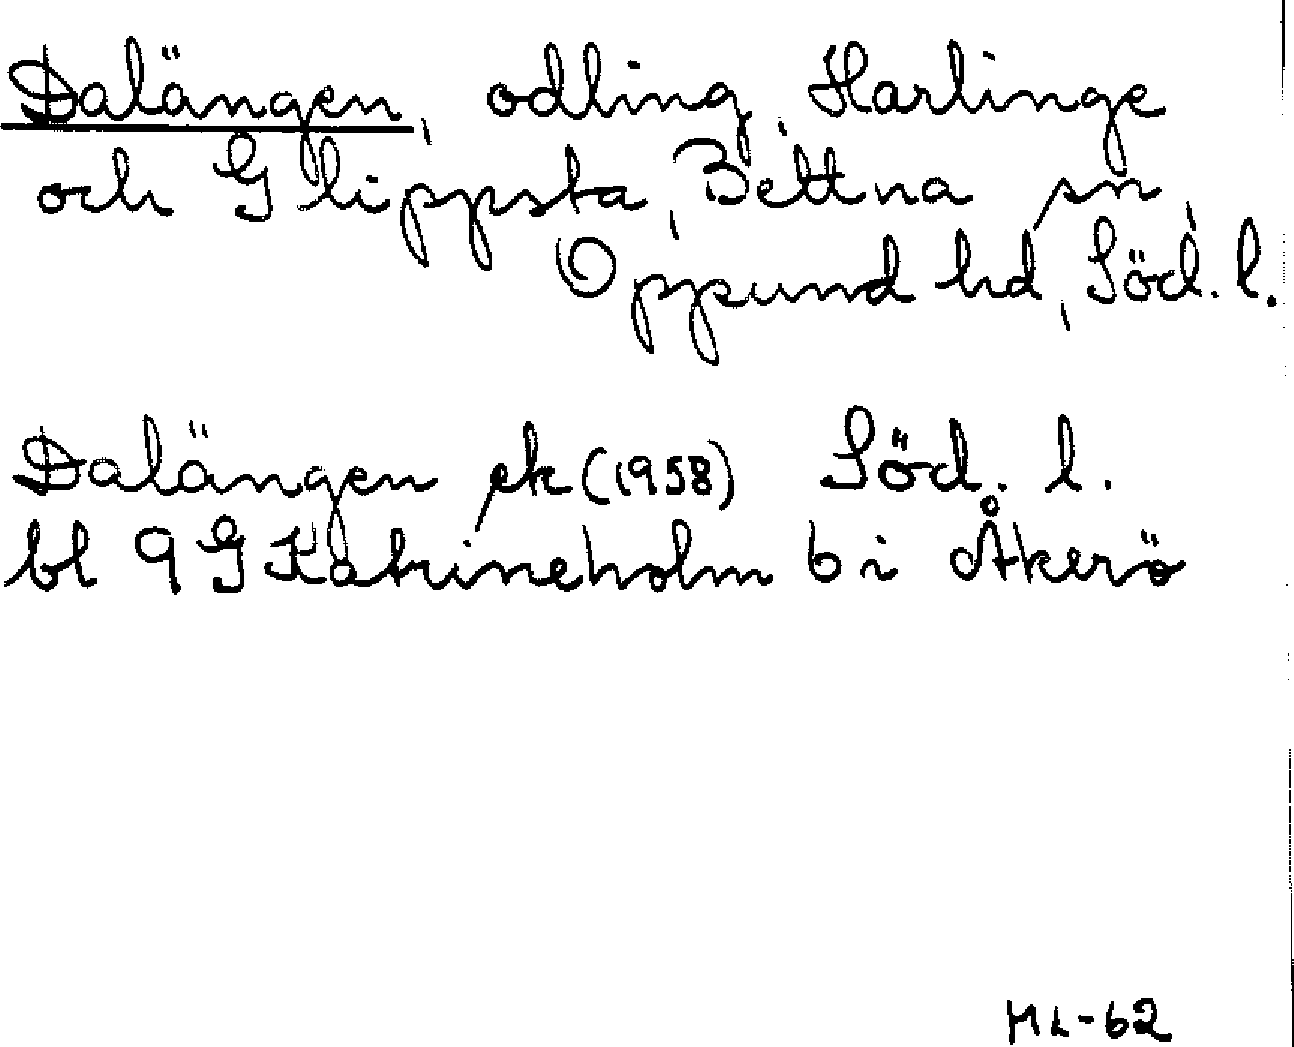 Dalängen, odling, Harlinge
och Glippsta, Bettna sn,
Oppund hd, Söd. l.
Dalängen ek (1958) Söd. l.
bl 9G Katrineholm 6 i Åkerö
ML-62